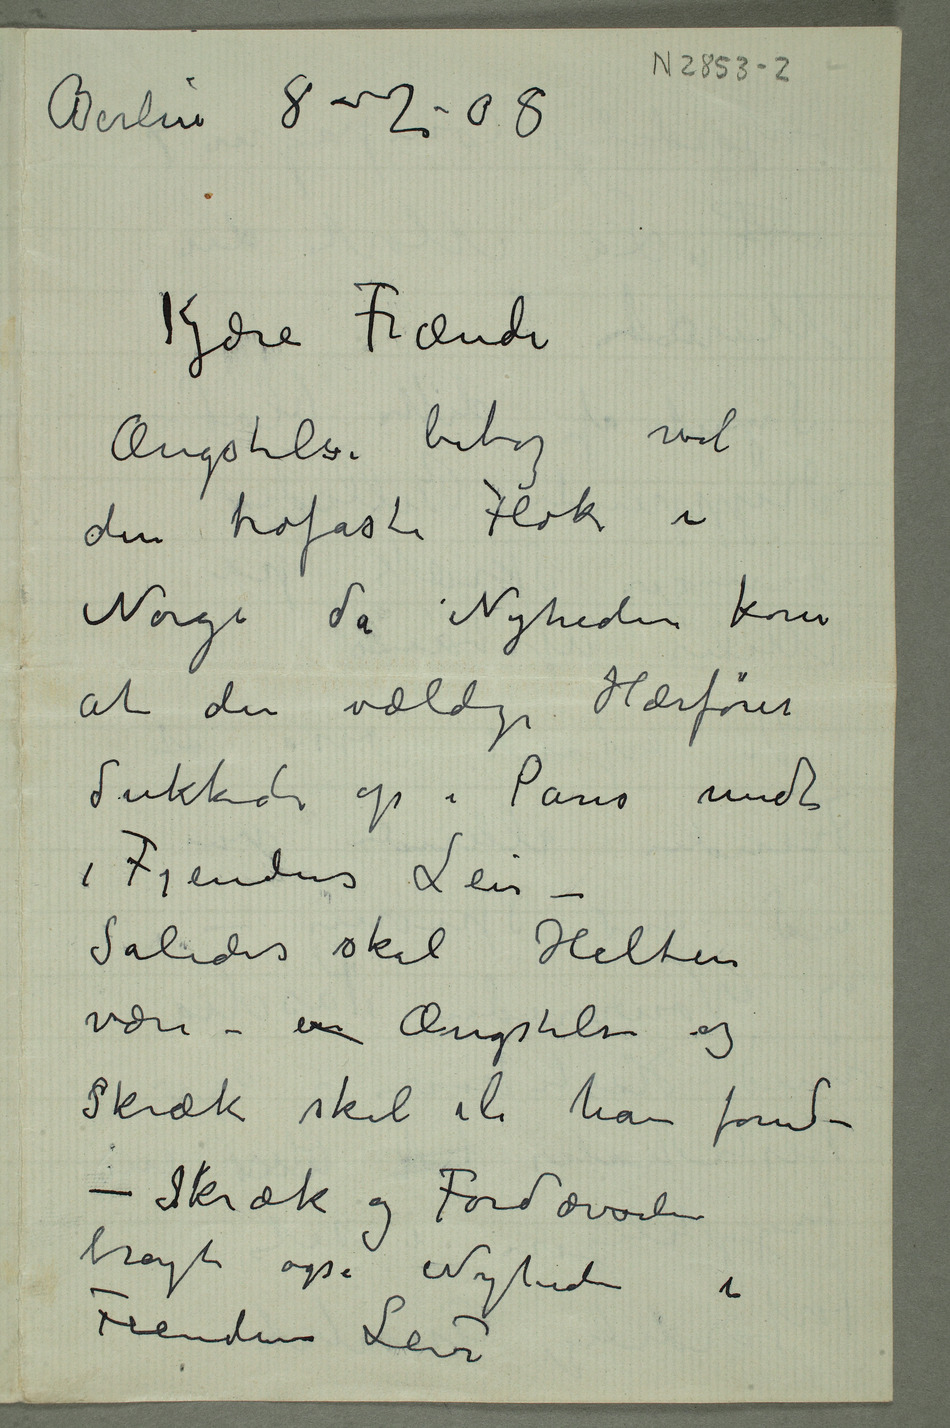 N 2853-2
Berlin 8-2-08
Kjære Frænde
Ængstelse betog vel
den trofaste Flok i
Norge da Nyheden kom
at den vældige Hærfører
dukkede op i Paris midt
i Fjendens Leir –
Således skal Helten
være – en Ængstelse og
Skræk skal ile ham forud –
– Skræk og Fordærvelse
bragte også Nyheden i
Fiendens Leir